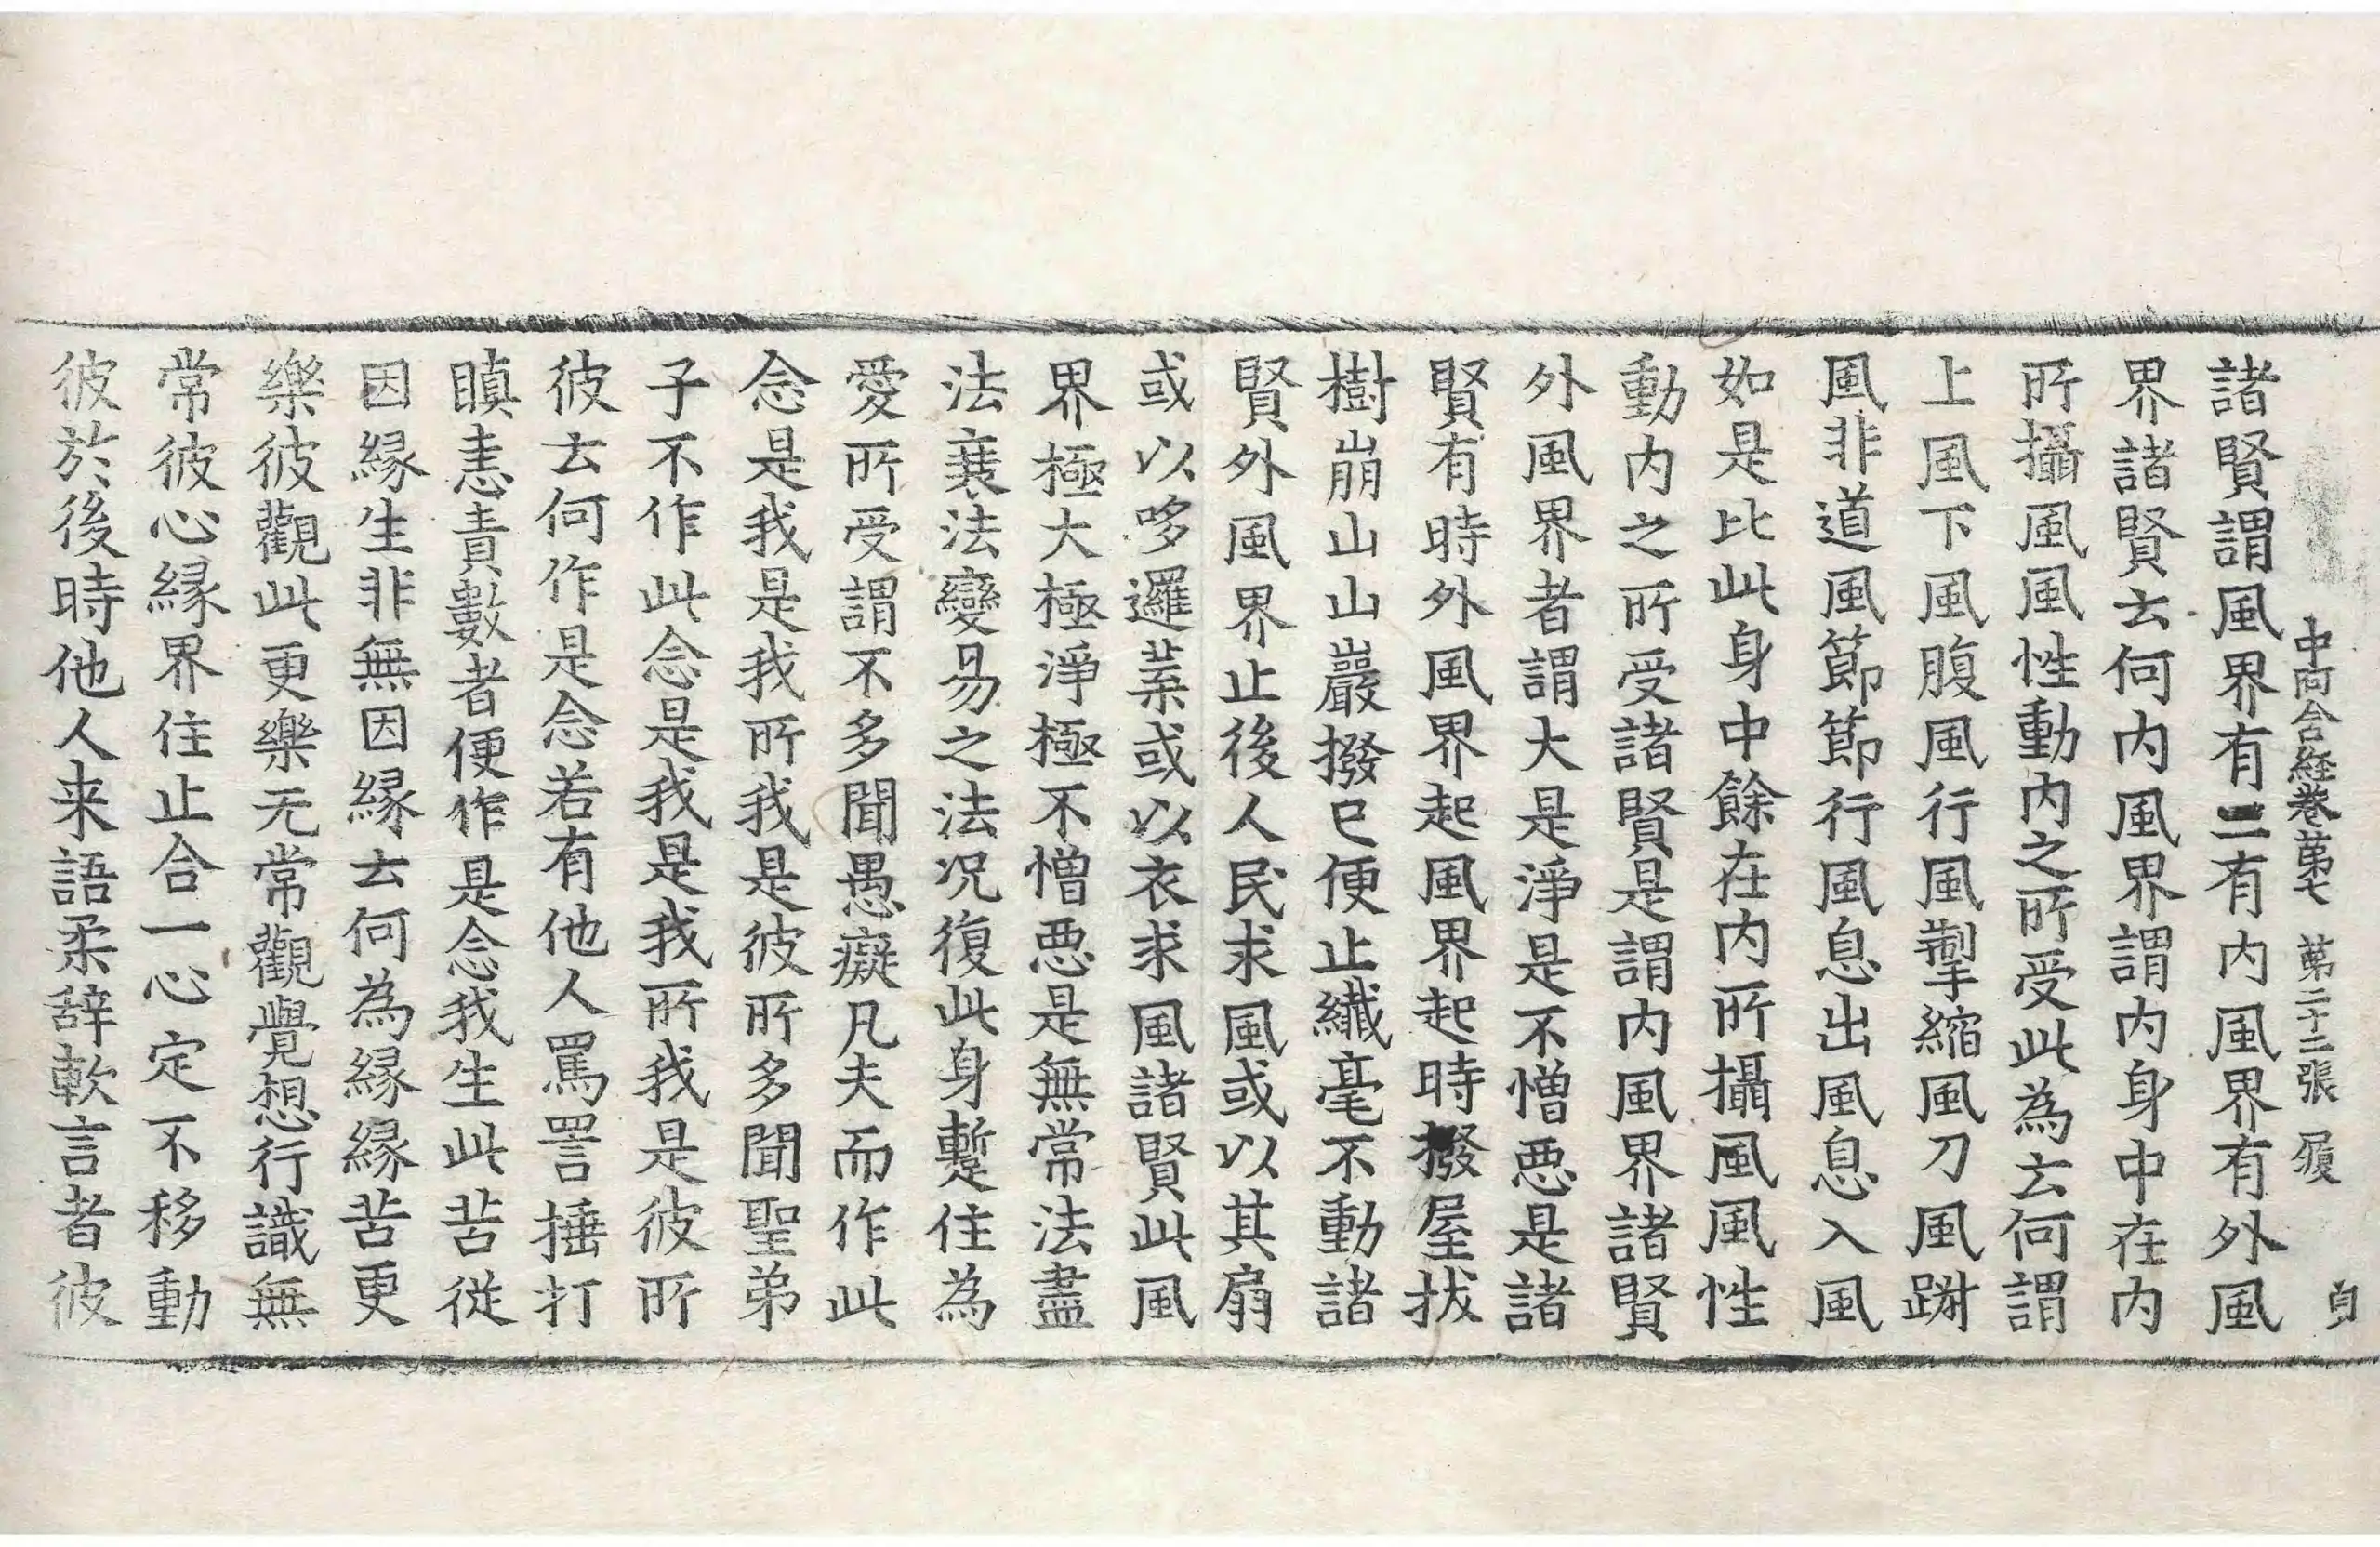 中阿含経卷苐七 苐二十二張 履
貞
諸賢謂風界有二有内風界有外風
界諸賢云何内風界謂内身中在内
所攝風風性動内之所受此為云何謂
上風下風腹風行風掣縮風刀風躃
風非道風節節行風息出風息入風
如是比此身中餘在内所攝風風性
動内之所受諸賢是謂内風界諸賢
外風界者謂大是淨是不憎惡是諸
賢有時外風界起風界起時撥屋拔
樹崩山山巖撥已便止纎毫不動諸
賢外風界止後人民求風或以其扇
或以哆邏葉或以衣求風諸賢此風
界極大極淨極不憎惡是無常法盡
法衰法變易之法况復此身蹔住為
愛所受謂不多聞愚癡凡夫而作此
念是我是我所我是彼所多聞聖弟
子不作此念是我是我所我是彼所
彼云何作是念若有他人罵詈捶打
瞋恚責數者便作是念我生此苦從
因縁生非無因縁云何為縁縁苦更
樂彼觀此更樂无常觀覺想行識無
常彼心縁界住止合一心定不移動
彼於後時他人来語柔辞軟言者彼